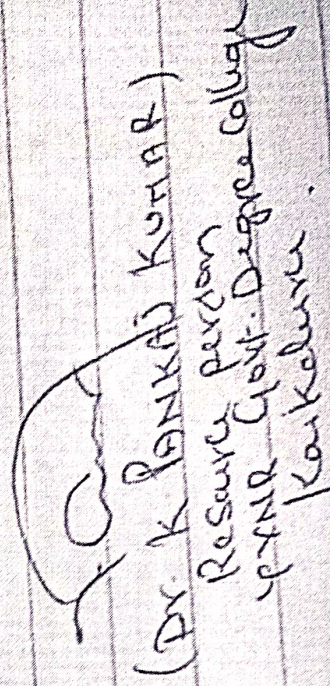 (Dr. K PANKAJ KUMAR)
Resource person
YVNR Govt. Degree College
Kaikaluru.